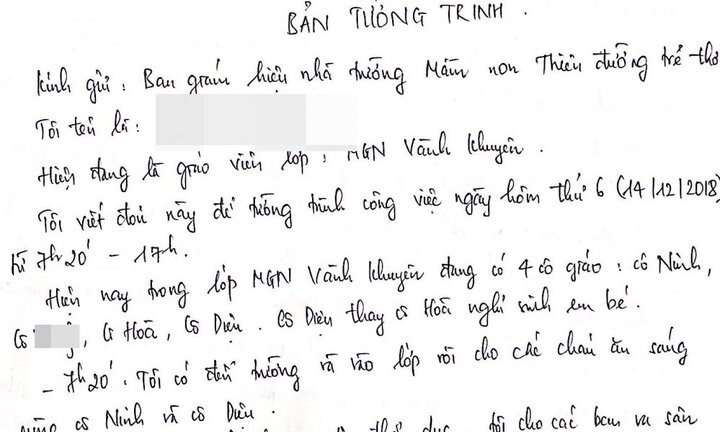 BẢN TƯỜNG TRÌNH.
Kính gửi: Ban giám hiệu nhà trường Mầm non Thiên đường trẻ thơ
Tôi tên là:
Hiện đang là giáo viên lớp: MGN Vành Khuyên.
Tôi viết đơn này để tường trình công việc ngày hôm thứ 6 (14/12/2018)
từ 7h20' - 17h.
Hiện nay trong lớp MGN Vành Khuyên đang có 4 cô giáo: cô Ninh,
Cô, Cô Hoà, Cô Diệu. Cô Diệu thay cô Hoà nghỉ sinh em bé.
- 7h20'. Tôi có đến trường và vào lớp rồi cho các cháu ăn sáng
cùng cô Ninh và cô Diệu.
thể dục, tôi cho các bạn ra sân